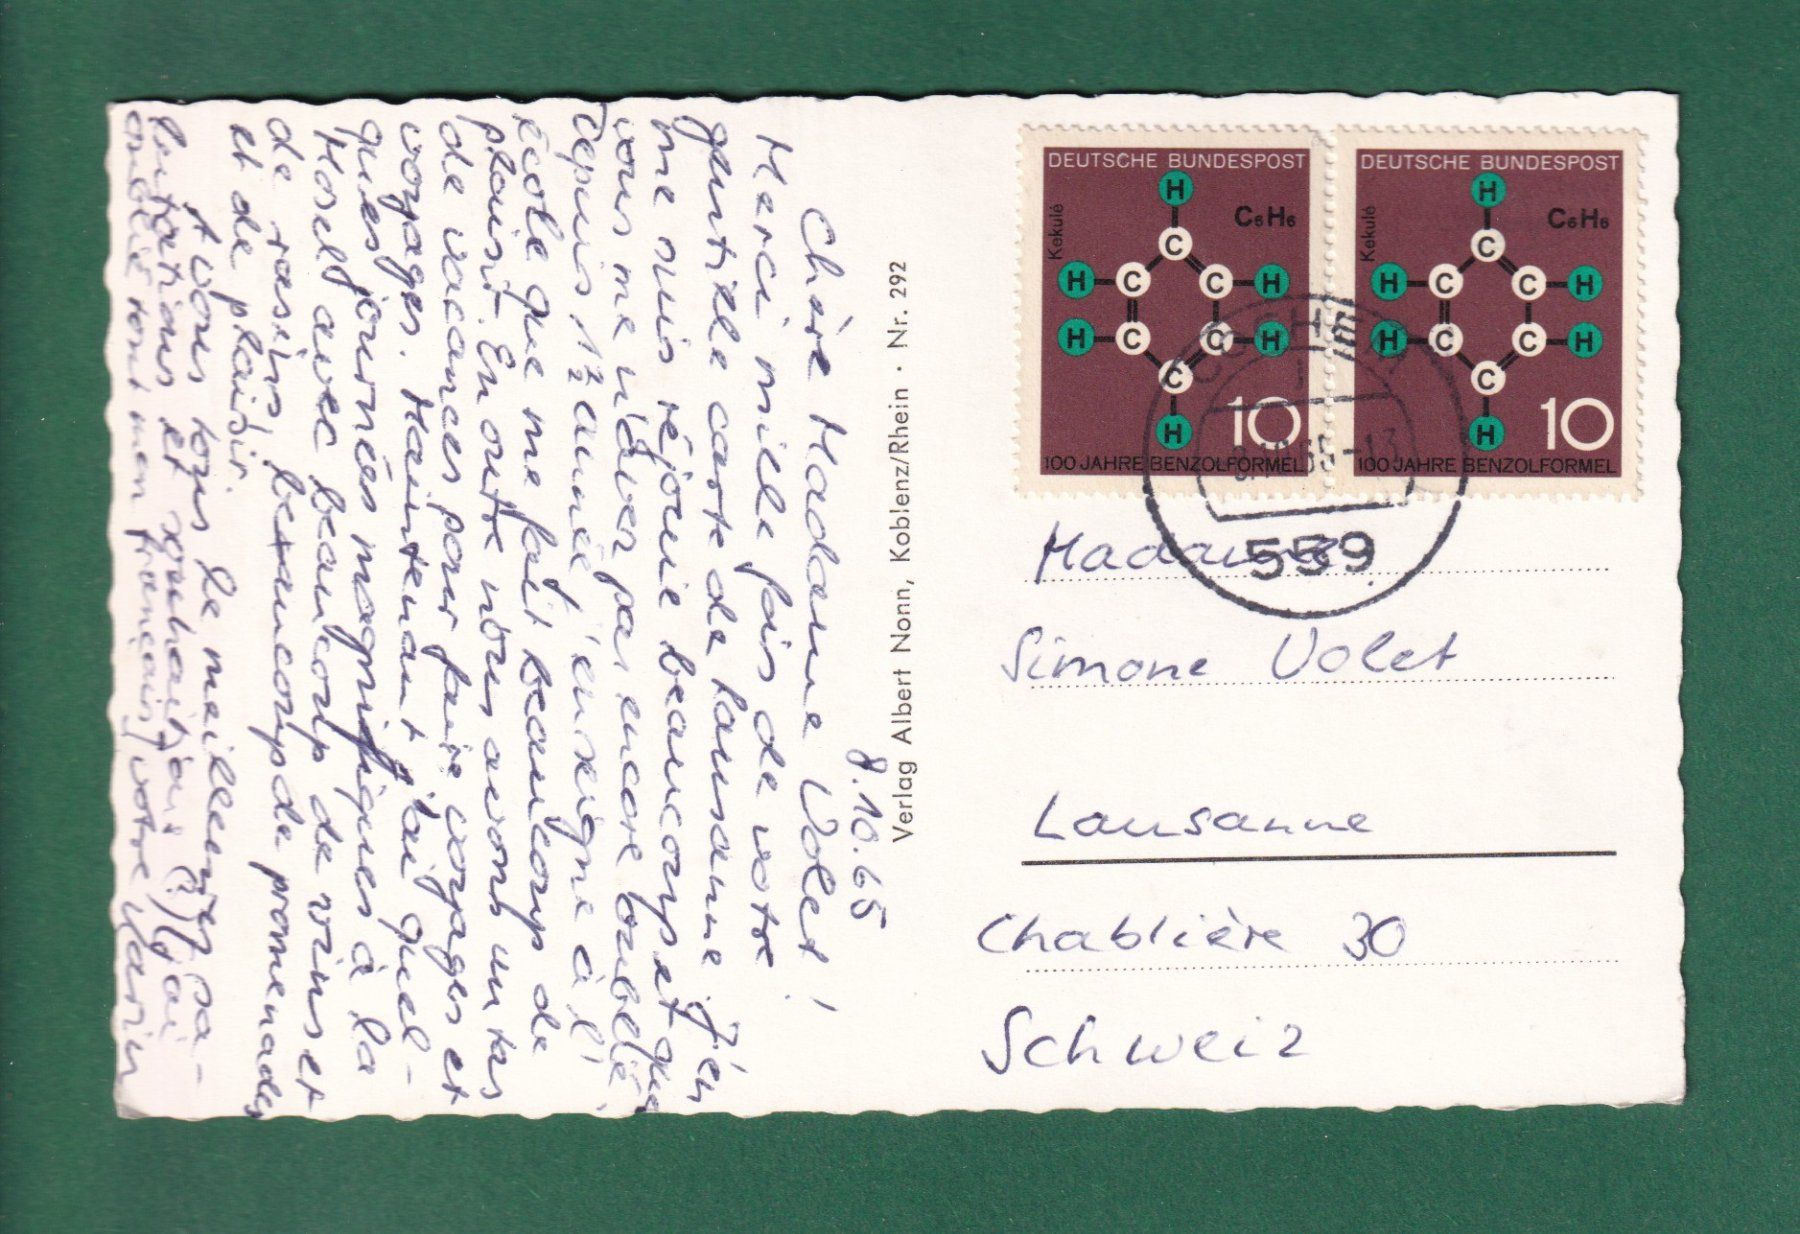 8.10.65
Chère Madame Volet!
Merci mille fois de votre
gentille carte de Lausanne. J'en
me suis réjouie beaucoup et que
vous me n'avez pas encore oublié
depuis 1½ année j'enseigne à l'
école que me fait beaucoup de
plaisir. En outre nous avons un tas
de vacances pour faire voyages et
voyages. Maintenant j'ai quel-
ques journées magnifiques à la
Mosel avec beaucoup de vins et
de rasins, beaucoup de promenades
et de plaisir.
A vous tous le meilleur sa-
lutations et souhaitions (?) (j'ai
oublié tout mon français) votre Karin
Verlag Albert Nonn, Koblenz/Rhein · Nr. 292
DEUTSCHE BUNDESPOST
Kekulé
C₆H₆
H
C
H C C H
H C C H
C
H
10
100 JAHRE BENZOLFORMEL
DEUTSCHE BUNDESPOST
Kekulé
C₆H₆
H
C
H C C H
H C C H
C
H
10
100 JAHRE BENZOLFORMEL
COCHEM
65-13
559
Madame
Simone Volet
Lausanne
Chablière 30
Schweiz